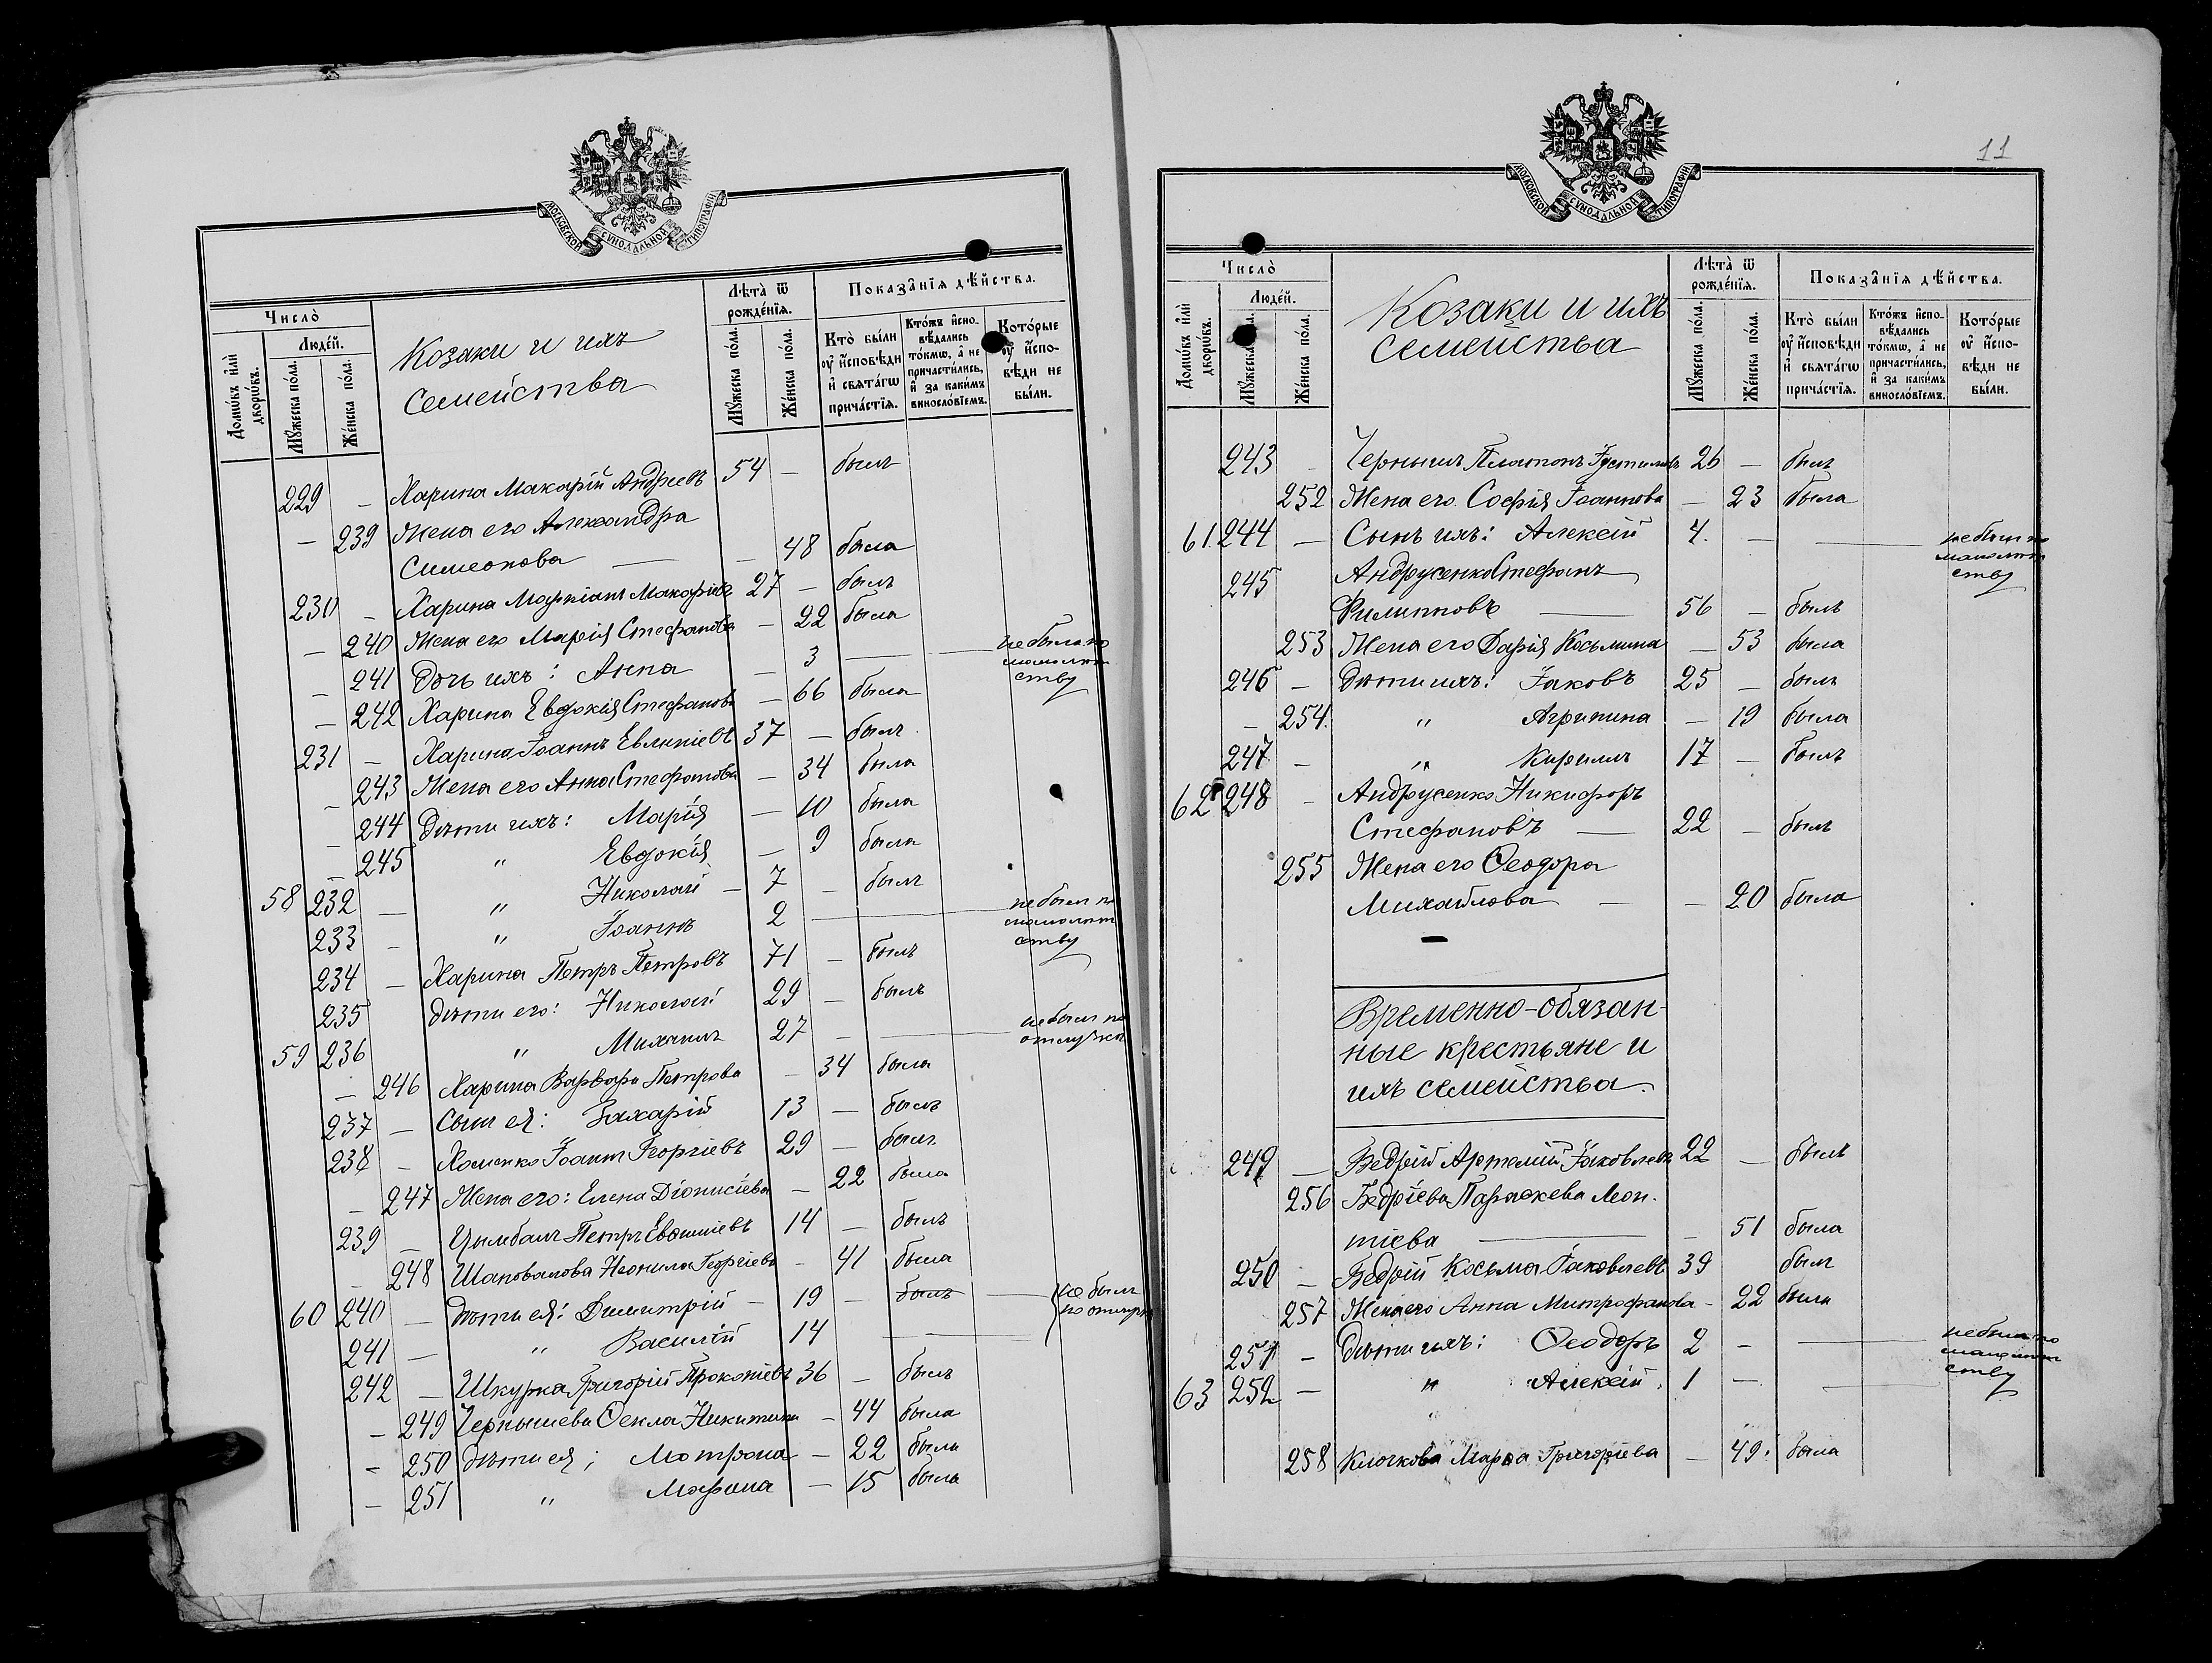 МОСКОВСКОЙ СѴНОДАЛЬНОЙ ТИПОГРАФІИ
Число̀
Домѡ́въ и҆лѝ дворѡ́въ.
Люде́й.
Мꙋ́жеска по́ла.
Же́нска по́ла.
Козаки и ихъ
семейства
Лѣ́та ѿ рожде́нїѧ.
Мꙋ́жеска по́ла.
Же́нска по́ла.
Показа̑нїѧ дѣ́йства.
Кто̀ бы́ли ᲂу҆ и҆сповѣ́ди и҆ свѧта́гѡ прича́стїѧ.
Кто́жъ и҆спо-вѣ́дались то́кмѡ, а҆ не причасти́лись, и҆ за каки́мъ винослові́емъ.
Кото́рые ᲂу҆ и҆спо-вѣ́ди не бы́ли.
229 – Харина Макарій Андреевъ 54 – былъ
– 239 Жена его Александра
Симеонова – – 48 была
230 – Харина Маркіанъ Макаріевъ 27 – былъ
– 240 Жена его Марія Стефанова – 22 была
– 241 Дочь ихъ: Анна – 3 – не была по малолѣтству
– 242 Харина Евдокія Стефанова – 66 была
231 – Харина Іоаннъ Евлипіевъ 37 – былъ
– 243 Жена его Анна Стефанова – 34 была
– 244 Дѣти ихъ: Марія – 10 была
– 245 " Евдокія – 9 была
58 232 – " Николай – 7 – былъ
233 – " Іоаннъ 2 – не былъ по малолѣтству
234 – Харина Петръ Петровъ 71 – былъ
235 Дѣти его: Николай 29 – былъ
59 236 " Михаилъ 27 – не былъ по отлучкѣ
– 246 Харина Варвара Петрова – 34 была
237 – Сынъ ея: Захарій 13 – былъ
238 – Хоменко Іоаннъ Георгіевъ 29 – былъ
– 247 Жена его: Елена Діонисіева – 22 была
239 – Цымбалъ Петръ 14 – былъ
– 248 Шаповалова Неонила Георгіева – 41 была
60 240 – Дѣти ея: Димитрій – 19 – былъ – не былъ по отлучкѣ
241 – " Василій 14 –
242 – Шкурка Григорій Прокопіевъ 36 – былъ
– 249 Чернышева Ѳекла Никитина – 44 была
– 250 Дѣти ея; Мотрона – 22 была
– 251 " Марина – 15 была
11
МОСКОВСКОЙ СѴНОДАЛЬНОЙ ТИПОГРАФІИ
Число̀
Домѡ́въ и҆лѝ дворѡ́въ.
Люде́й.
Мꙋ́жеска по́ла.
Же́нска по́ла.
Козаки и ихъ
семейства
Лѣ́та ѿ рожде́нїѧ.
Мꙋ́жеска по́ла.
Же́нска по́ла.
Показа̑нїѧ дѣ́йства.
Кто̀ бы́ли ᲂу҆ и҆сповѣ́ди и҆ свѧта́гѡ прича́стїѧ.
Кто́жъ и҆спо-вѣ́дались то́кмѡ, а҆ не причасти́лись, и҆ за каки́мъ винослові́емъ.
Кото́рые ᲂу҆ и҆спо-вѣ́ди не бы́ли.
243 – Чернышъ Платонъ 26 – былъ
252 Жена его Софія Іоаннова – 23 была
61. 244 – Сынъ ихъ: Алексій 4. – не былъ по малолѣтству
245 Андрусенко Стефанъ
Филипповъ – 56 – былъ
253 Жена его Дарія Косьмина – 53 была
246 – Дѣти ихъ: Іаковъ 25 – былъ
– 254. " Агрипина – 19 была
247 – " Кирилъ 17 – былъ
62 248 – Андрусенко Никифоръ
Стефановъ – 22 – былъ
255 Жена его Ѳеодора
Михайлова – – 20 была
Временно-обязан-
ные крестьяне и
ихъ семейства.
249 – Бедрій Артемій Іаковлевъ 22 – былъ
256 Бедріева Параскева Леон-
тіева – – 51 была
250 – Бедрій Косьма Іаковлевъ 39 былъ
257 Жена его Анна Митрофанова – 22 была
251 – Дѣти ихъ: Ѳеодоръ 2 – не были по малолѣтству
63 252 – " Алексій. 1 –
258 Клочкова Марѳа Григоріева – 49. была